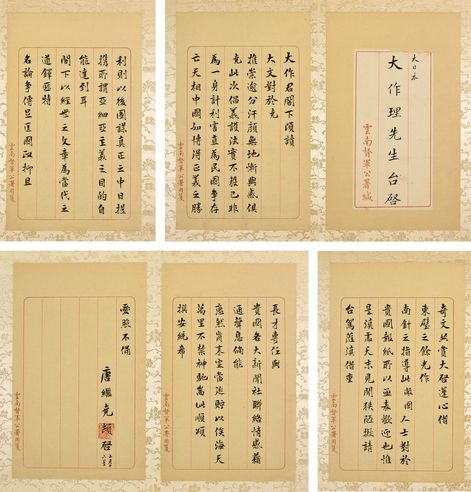 大日本
大作理先生台啓
雲南督軍公署緘
大作君閣下頃讀
大文對於堯
推崇逾分汗顏無地慚與感俱
堯此次倡義護法實不獲已非
為一身計利害直為民國爭存
亡天相中國如得正義之勝
雲南督軍公署用箋
利則以後圖謀真正之中日提
攜所謂亞細亞主義之目的自
能達到耳
閣下以經世之文章為當代之
鐸匪特
名論爭傳益匡國政抑且
雲南督軍公署用箋
奇文共賞大啓蓬心借
東壁之餘光作
南針之指導此敝國人士對於
貴國報紙所以亟表歡迎也惟
是滇處天末見聞狹陋擬請
台駕蒞滇借重
雲南督軍公署用箋
長才專任與
貴國各大新聞社聯絡情感藉
通聲息倘能
惠然肯來當遠以俟海天
萬里不禁神馳為此順頌
撰安統希
雲南督軍公署用箋
亮照不備
唐繼堯頓啓
雲南督軍公署用箋